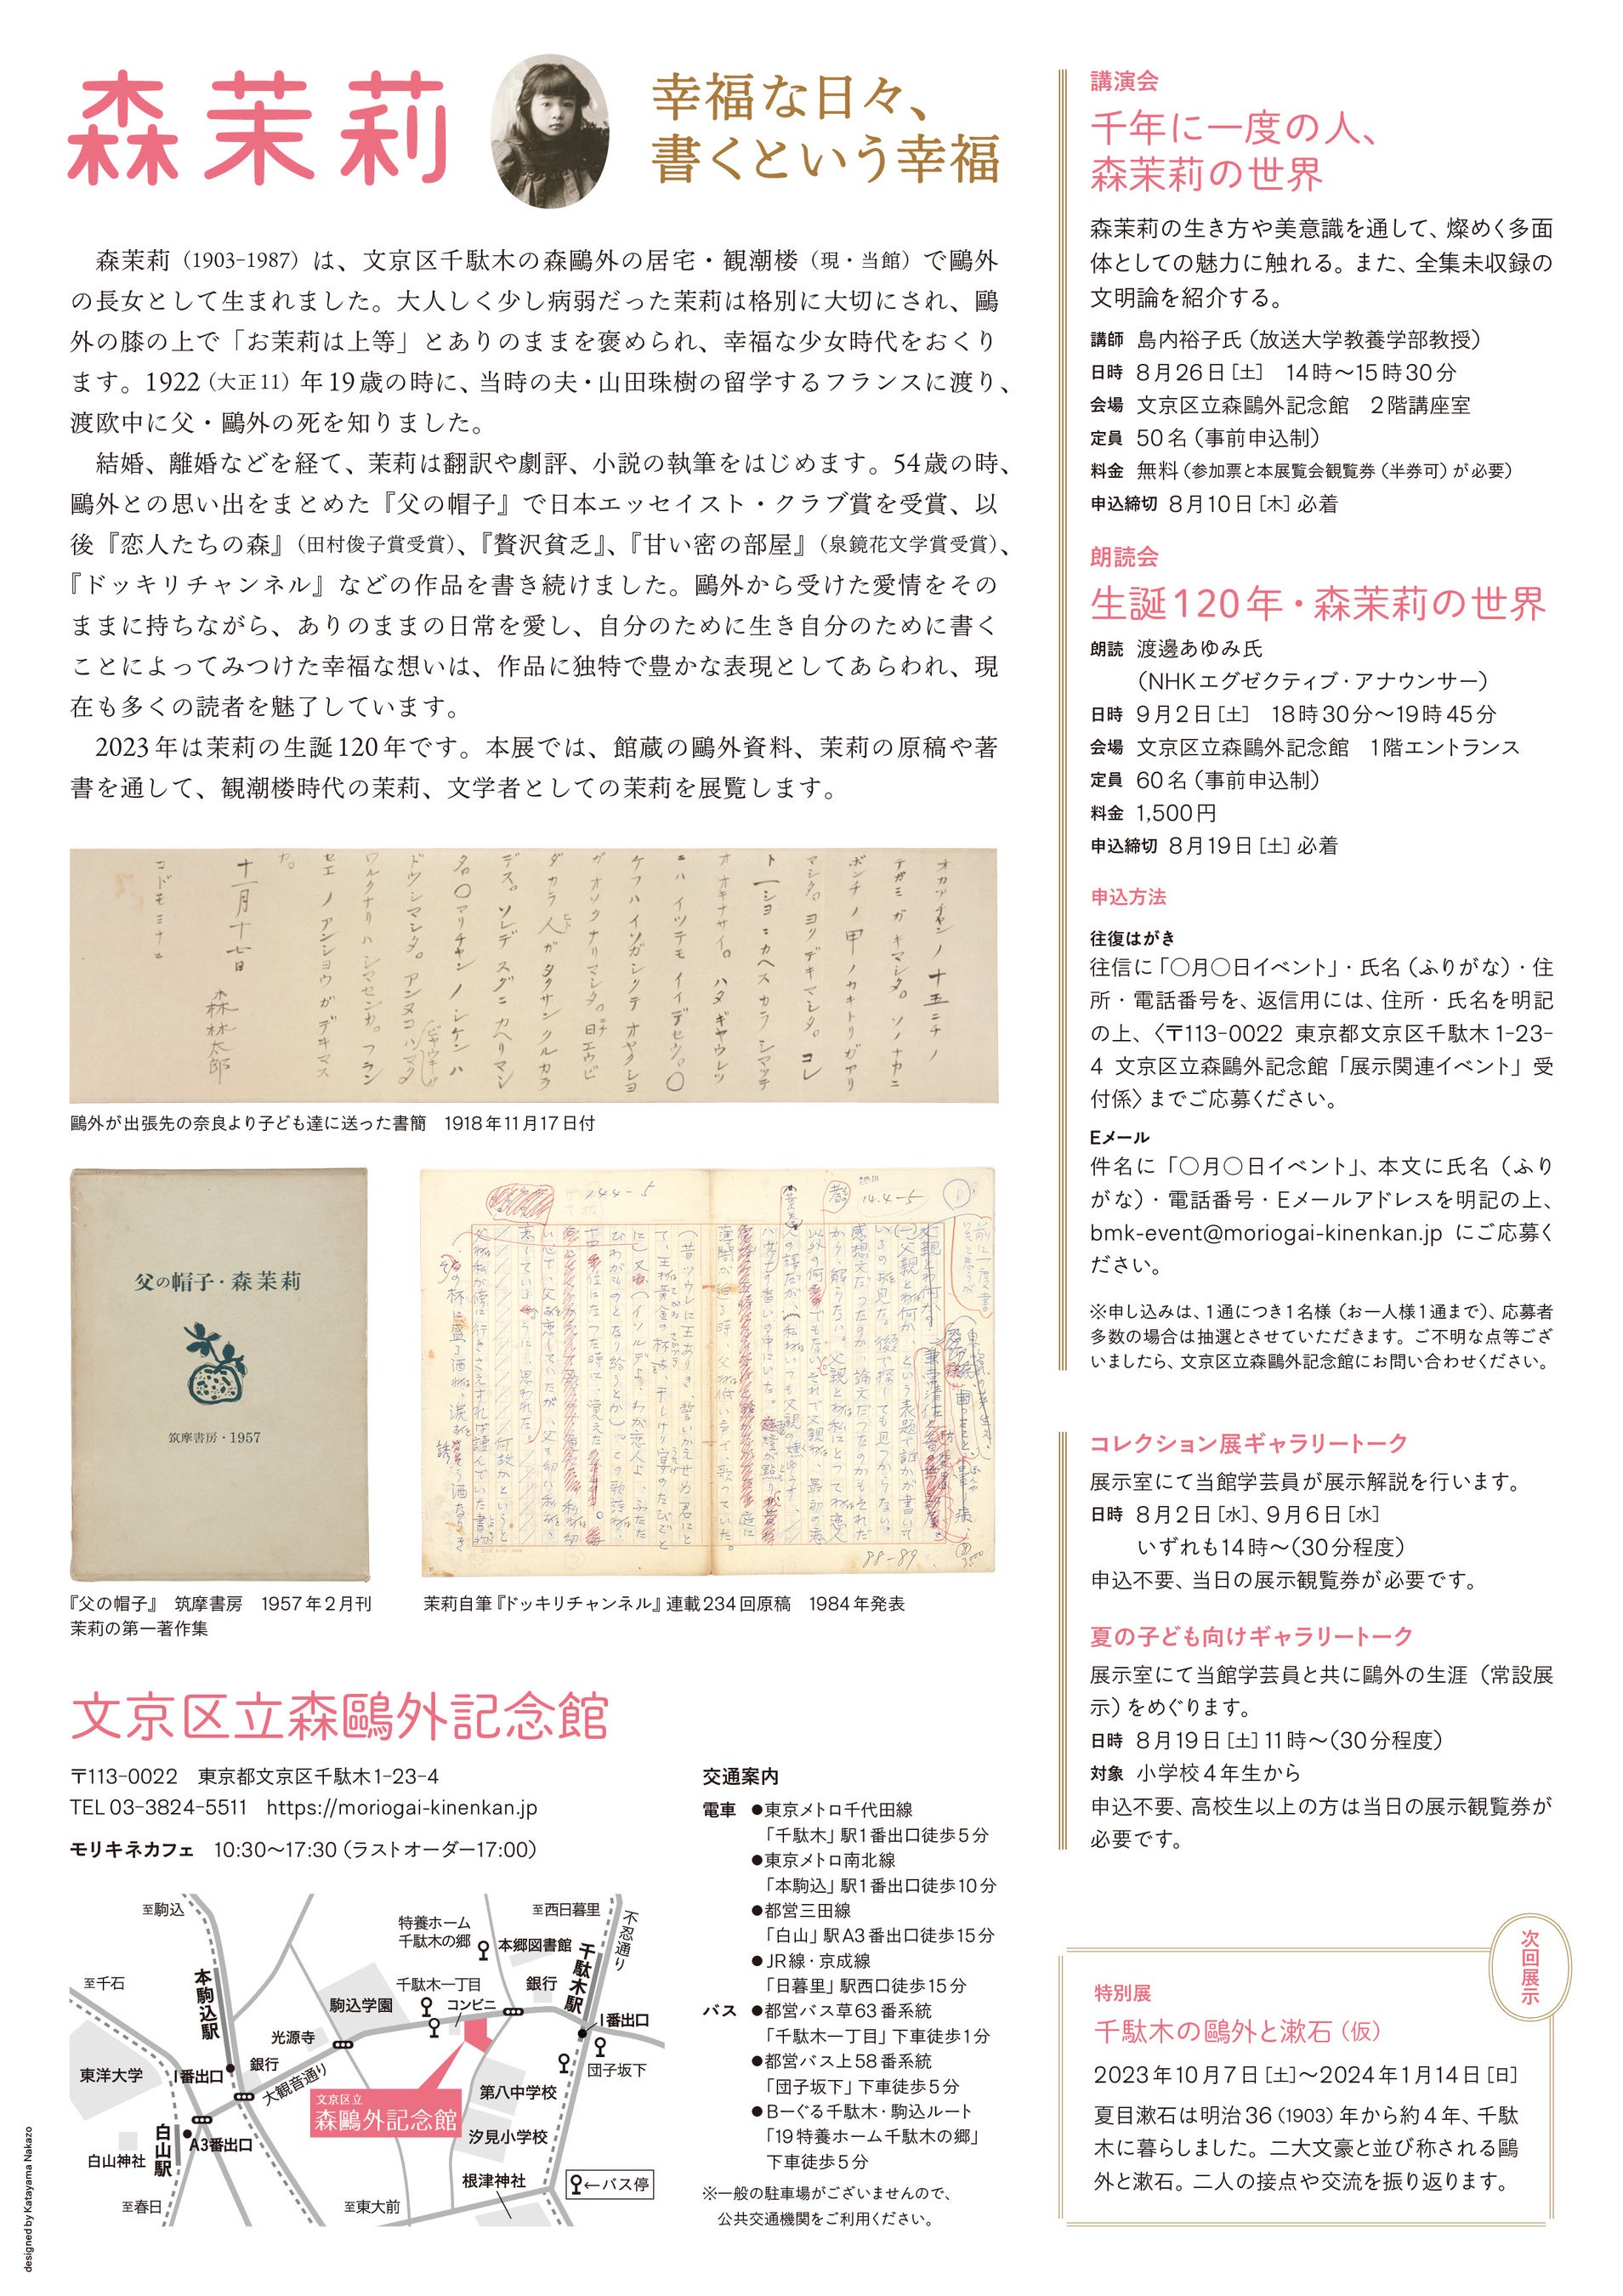 森茉莉
幸福な日々、
書くという幸福
森茉莉（1903-1987）は、文京区千駄木の森鷗外の居宅・観潮楼（現・当館）で鷗外
の長女として生まれました。大人しく少し病弱だった茉莉は格別に大切にされ、鷗
外の膝の上で「お茉莉は上等」とありのままを褒められ、幸福な少女時代をおくり
ます。1922（大正11）年19歳の時に、当時の夫・山田珠樹の留学するフランスに渡り、
渡欧中に父・鷗外の死を知りました。
結婚、離婚などを経て、茉莉は翻訳や劇評、小説の執筆をはじめます。54歳の時、
鷗外との思い出をまとめた『父の帽子』で日本エッセイスト・クラブ賞を受賞、以
後『恋人たちの森』（田村俊子賞受賞）、『贅沢貧乏』、『甘い密の部屋』（泉鏡花文学賞受賞）、
『ドッキリチャンネル』などの作品を書き続けました。鷗外から受けた愛情をその
ままに持ちながら、ありのままの日常を愛し、自分のために生き自分のために書く
ことによってみつけた幸福な想いは、作品に独特で豊かな表現としてあらわれ、現
在も多くの読者を魅了しています。
2023年は茉莉の生誕120年です。本展では、館蔵の鷗外資料、茉莉の原稿や著
書を通して、観潮楼時代の茉莉、文学者としての茉莉を展覧します。
オカアチャンノ十五ニチノ
テガミガキマシタ。ソノナカニ
ボンチノ甲ノカキトリガアリ
マシタ。ヨクデキマシタ。コレ
ト一ショニカヘスカラシマツテ
オオキナサイ。ハタギヤウレツ
ニハイツテモイイデセウ。〇
ケフハイソガシクテオヤクシヨ
ガオソクナリマシタ。日エウビ
ダカラ人ガタクサンクルカラ
デス。ソレデスグニカヘリマシ
タ。〇マリチヤンノシケンハ
ドウシマシタ。アンヌコハマタ
ワルクナリハシマセンカ。フラン
セエノアンシヨウガデキマス
カ。
十一月十七日 森林太郎
コドモミナニ
鷗外が出張先の奈良より子ども達に送った書簡　1918年11月17日付
父の帽子・森茉莉
筑摩書房・1957
『父の帽子』　筑摩書房　1957年2月刊
茉莉の第一著作集
144-5
14.4-5
88-89
茉莉自筆『ドッキリチャンネル』連載234回原稿　1984年発表
文京区立森鷗外記念館
〒113-0022　東京都文京区千駄木1-23-4
TEL 03-3824-5511　https://moriogai-kinenkan.jp
モリキネカフェ　10:30〜17:30（ラストオーダー17:00）
至駒込
至千石
本駒込駅
東洋大学
1番出口
銀行
光源寺
大観音通り
駒込学園
特養ホーム
千駄木の郷
千駄木一丁目
コンビニ
本郷図書館
銀行
至西日暮里
千駄木駅
不忍通り
1番出口
団子坂下
文京区立
森鷗外記念館
第八中学校
汐見小学校
根津神社
白山駅
A3番出口
白山神社
至春日
至東大前
←バス停
交通案内
電車 ●東京メトロ千代田線
「千駄木」駅1番出口徒歩5分
●東京メトロ南北線
「本駒込」駅1番出口徒歩10分
●都営三田線
「白山」駅A3番出口徒歩15分
●JR線・京成線
「日暮里」駅西口徒歩15分
バス ●都営バス草63番系統
「千駄木一丁目」下車徒歩1分
●都営バス上58番系統
「団子坂下」下車徒歩5分
●Bーぐる千駄木・駒込ルート
「19特養ホーム千駄木の郷」
下車徒歩5分
※一般の駐車場がございませんので、
公共交通機関をご利用ください。
designed by Katayama Nakazo
講演会
千年に一度の人、
森茉莉の世界
森茉莉の生き方や美意識を通して、燦めく多面
体としての魅力に触れる。また、全集未収録の
文明論を紹介する。
講師 島内裕子氏（放送大学教養学部教授）
日時 8月26日［土］　14時〜15時30分
会場 文京区立森鷗外記念館　2階講座室
定員 50名（事前申込制）
料金 無料（参加票と本展覧会観覧券（半券可）が必要）
申込締切 8月10日［木］必着
朗読会
生誕120年・森茉莉の世界
朗読 渡邊あゆみ氏
（NHKエグゼクティブ・アナウンサー）
日時 9月2日［土］　18時30分〜19時45分
会場 文京区立森鷗外記念館　1階エントランス
定員 60名（事前申込制）
料金 1,500円
申込締切 8月19日［土］必着
申込方法
往復はがき
往信に「〇月〇日イベント」・氏名（ふりがな）・住
所・電話番号を、返信用には、住所・氏名を明記
の上、〈〒113-0022 東京都文京区千駄木1-23-
4 文京区立森鷗外記念館「展示関連イベント」受
付係〉までご応募ください。
Eメール
件名に「〇月〇日イベント」、本文に氏名（ふり
がな）・電話番号・Eメールアドレスを明記の上、
bmk-event@moriogai-kinenkan.jp にご応募く
ださい。
※申し込みは、1通につき1名様（お一人様1通まで）、応募者
多数の場合は抽選とさせていただきます。ご不明な点等ござ
いましたら、文京区立森鷗外記念館にお問い合わせください。
コレクション展ギャラリートーク
展示室にて当館学芸員が展示解説を行います。
日時 8月2日［水］、9月6日［水］
いずれも14時〜（30分程度）
申込不要、当日の展示観覧券が必要です。
夏の子ども向けギャラリートーク
展示室にて当館学芸員と共に鷗外の生涯（常設展
示）をめぐります。
日時 8月19日［土］11時〜（30分程度）
対象 小学校4年生から
申込不要、高校生以上の方は当日の展示観覧券が
必要です。
次回展示
特別展
千駄木の鷗外と漱石（仮）
2023年10月7日［土］〜2024年1月14日［日］
夏目漱石は明治36（1903）年から約4年、千駄
木に暮らしました。二大文豪と並び称される鷗
外と漱石。二人の接点や交流を振り返ります。